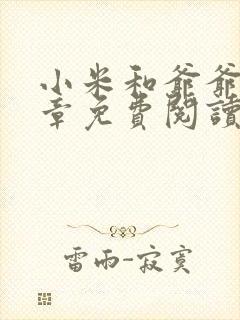 小米和爺爺
章免費閱讀
雷雨-寂寞